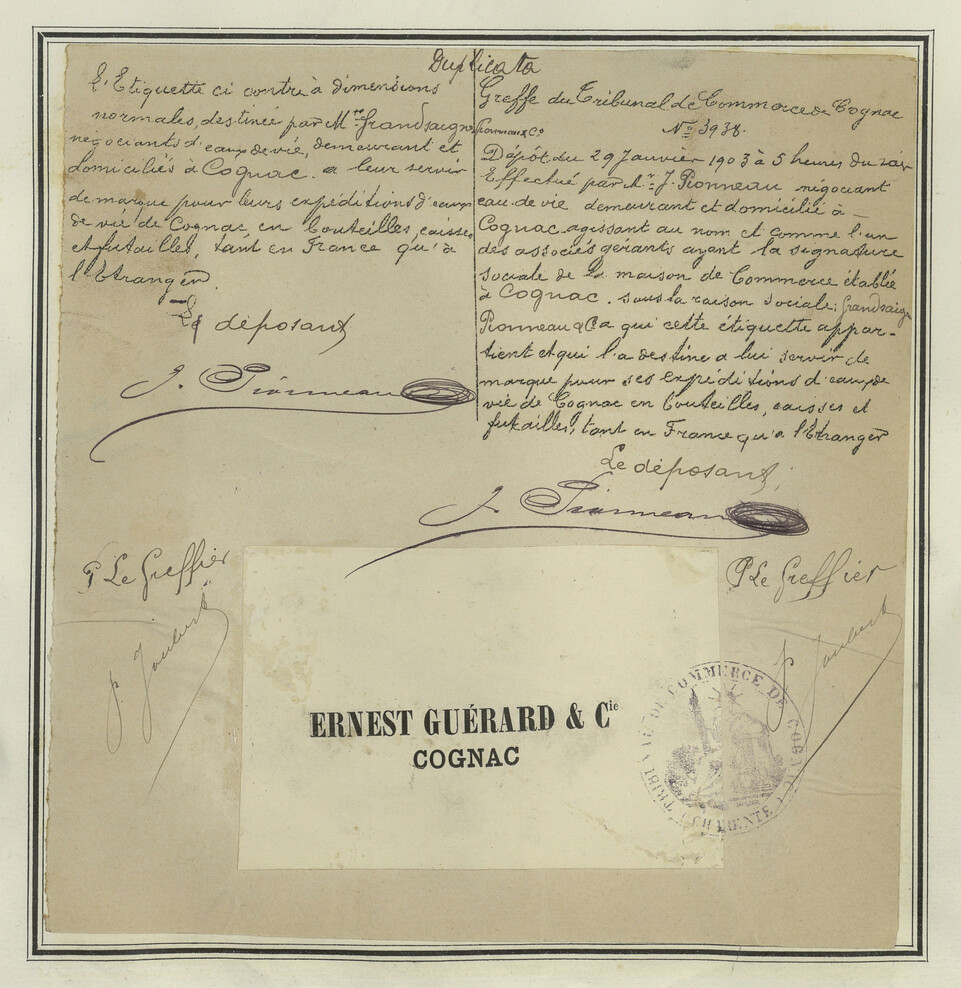 Duplicata
L'Etiquette ci contre à dimensions
normales, destinée par Mrs Grandsaigne
Pionneau & Co
négociants d'eaux de vie, demeurant et
domiciliés à Cognac. a leur servir
de marque pour leurs expéditions d'eaux
de vie de Cognac en bouteilles, caisses
et futailles, tant en France qu'à
l'Etranger.
Le déposant
J. Pionneau
Greffe du Tribunal de Commerce de Cognac
No 3938.
Dépôt du 29 Janvier 1903 à 5 heures du soir
Effectué par Mr. J. Pionneau négociant
eau de vie demeurant et domicilié à -
Cognac, agissant au nom et comme l'un
des associés gérants ayant la signature
sociale de la maison de Commerce établie
à Cognac. sous la raison sociale: Grandsaigne
Pionneau & Ca qui cette étiquette appar-
tient et qui l'a destine a lui servir de
marque pour ses expéditions d'eaux de
vie de Cognac en bouteilles, caisses et
futailles, tant en France qu'a l'Etranger
Le déposant,
J. Pionneau
P Le Greffier
P. Joubert
P Le Greffier
P. Joubert
ERNEST GUÉRARD & Cie
COGNAC
TRIBUNAL DE COMMERCE DE COGNAC
(CHARENTE)